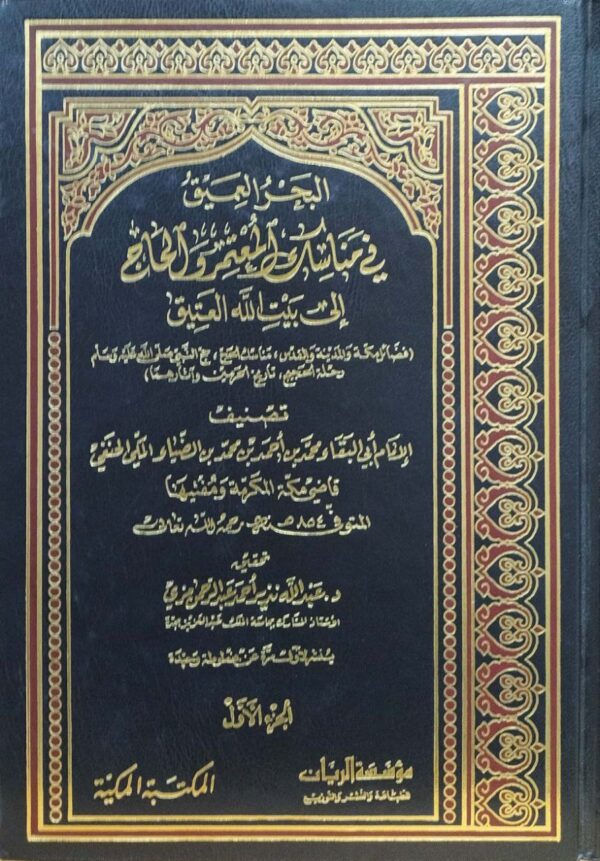 البحر العميق
في مناسك المعتمر والحاج
إلى بيت الله العتيق
(فضائل مكة والمدينة والقدس، مناسك الحج، حج النبي صلى الله عليه وسلم
رحلة الحجيج، تاريخ الحرمين وآثارهما)
تصنيف
الإمام أبي البقاء محمد بن أحمد بن محمد بن الضياء المكي الحنفي
قاضي مكة المكرمة ومفتيها
المتوفى ٨٥٤ هـ رحمه الله تعالى
تحقيق
د. عبد الله نذير أحمد عبد الرحمن مزي
الأستاذ المشارك بجامعة الملك عبد العزيز بجدة
ينشر لأول مرة عن مخطوطة وحيدة
الجزء الأول
مؤسسة الريان
للطباعة والنشر والتوزيع
المكتبة المكية